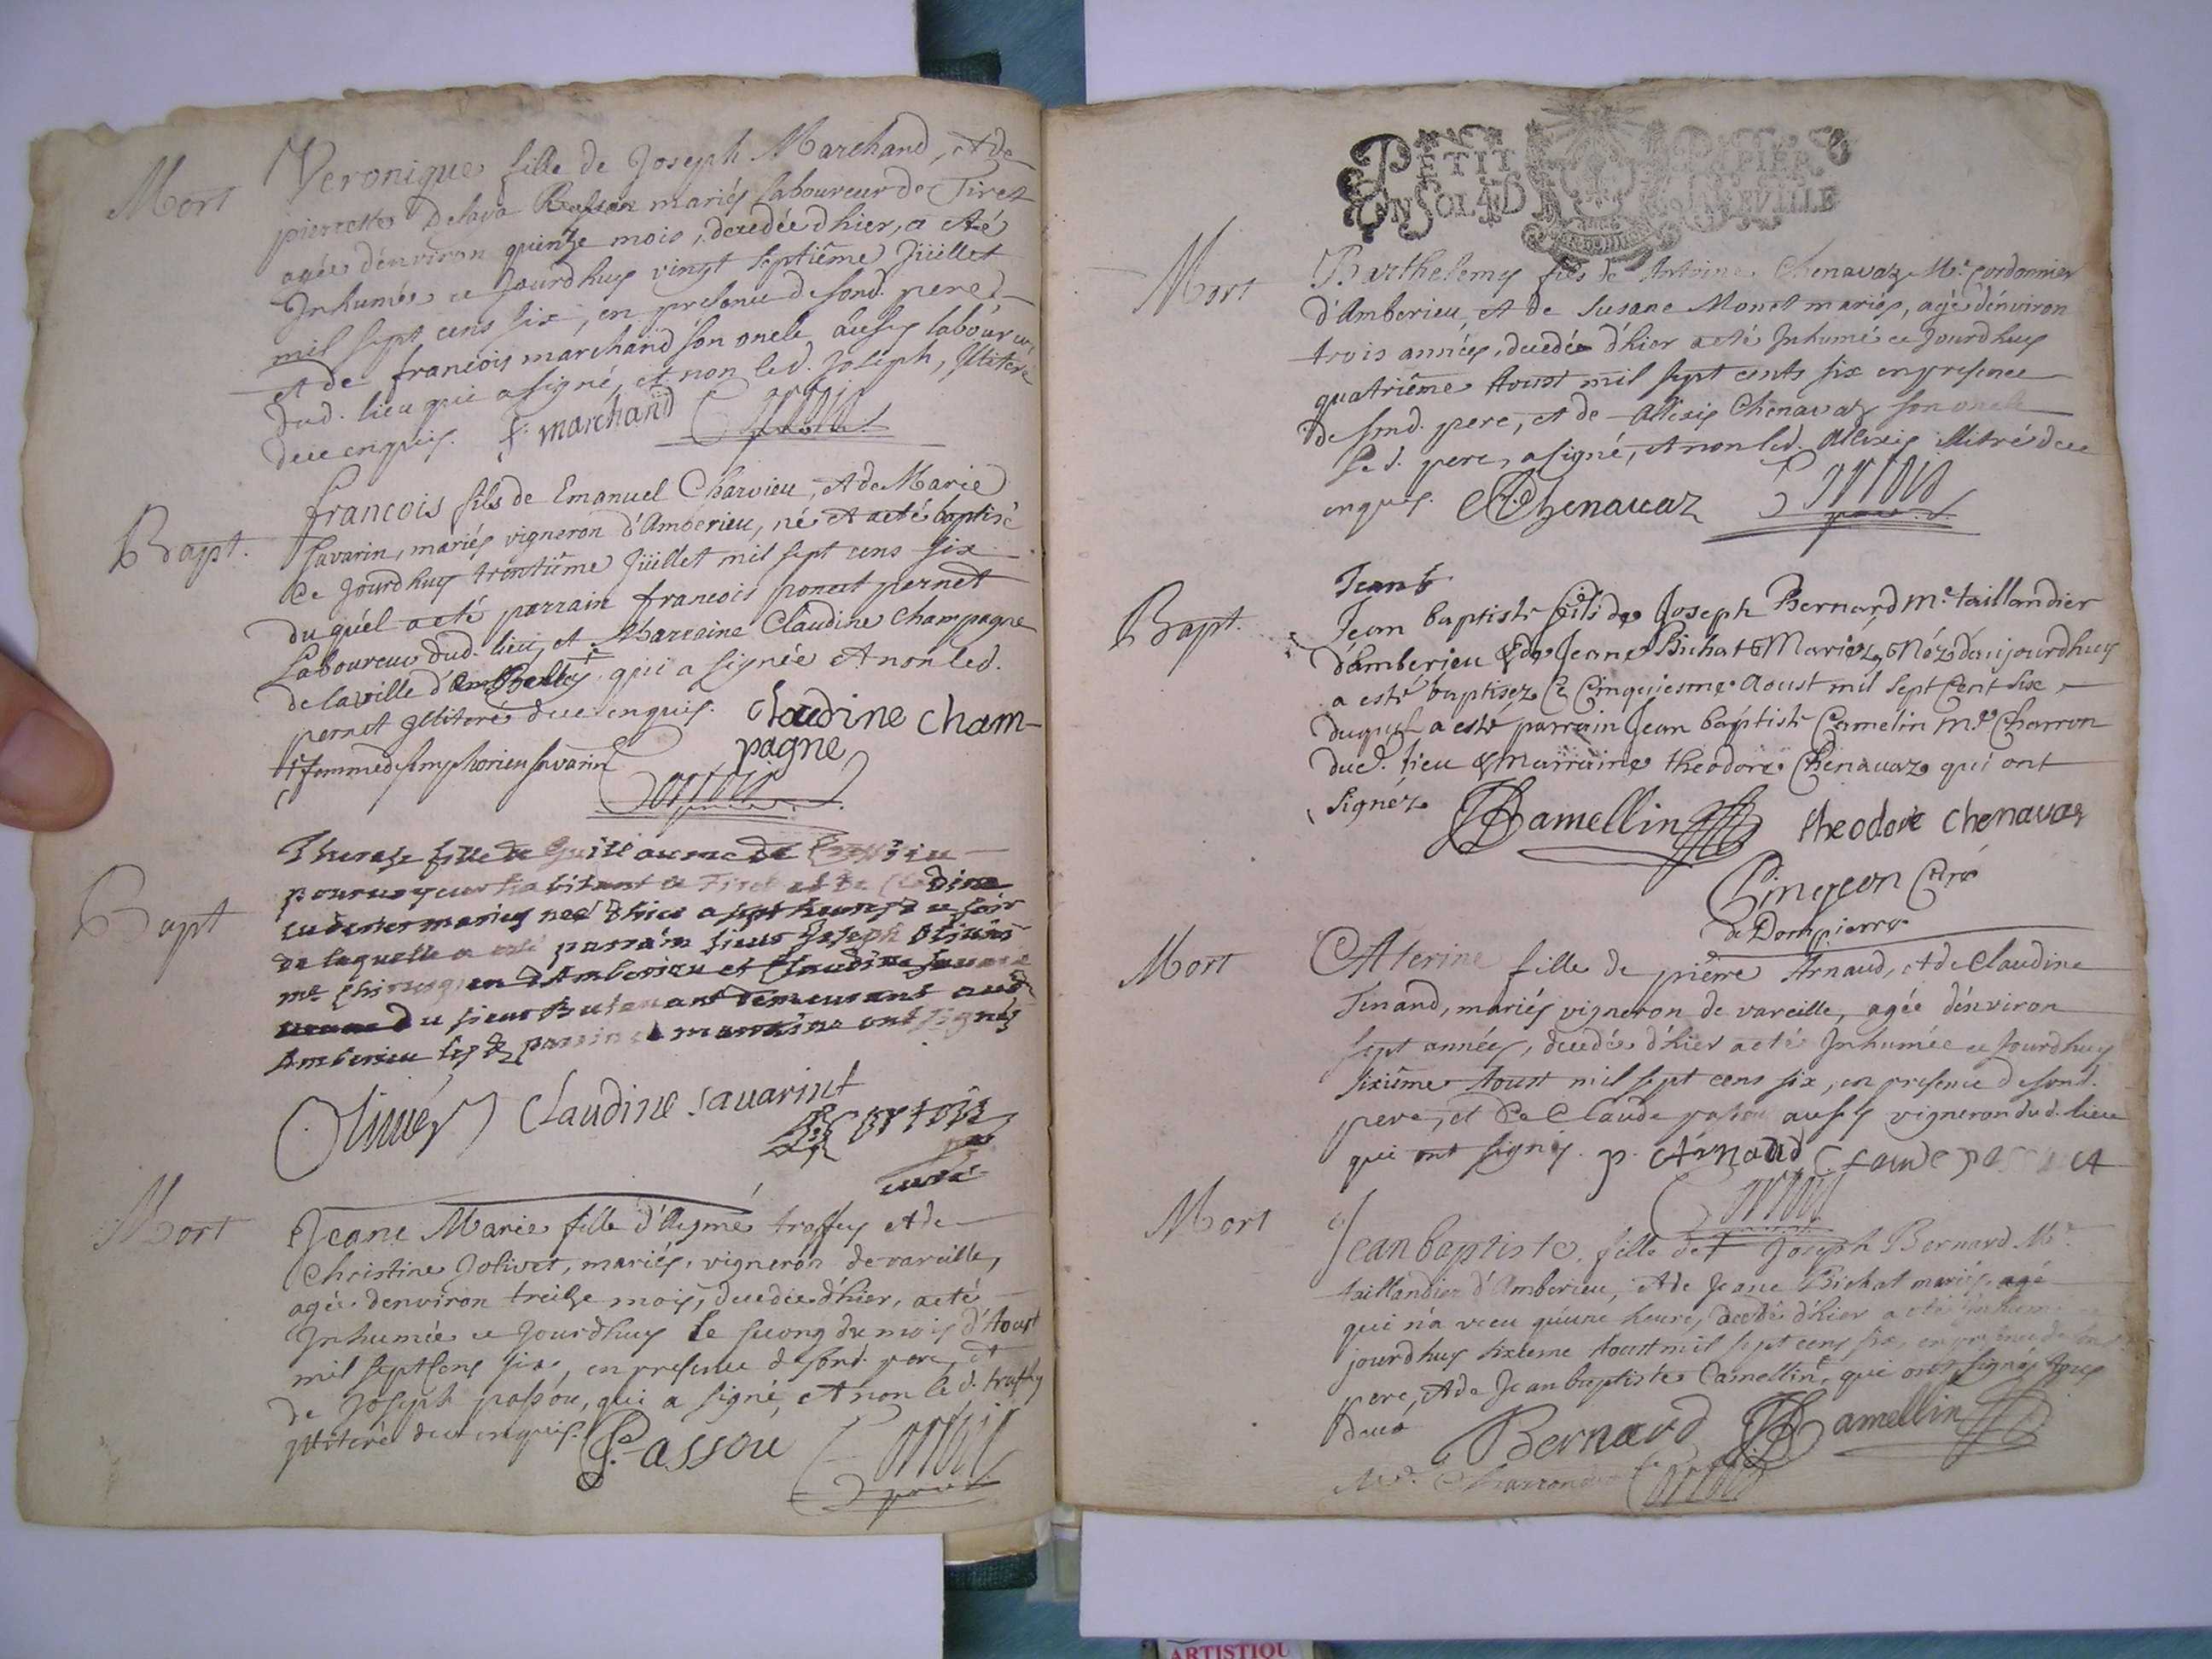 Mort
Veronique fille de Joseph Marchand, et de
pierrette Delava mariés laboureur de Tiret
agée d'environ quinze mois, decedée d'hier, a eté
Inhumée ce Jourdhuy vingt septiême Juillet
mil sept cens six, en presence de sond. pere
et de francois marchand son oncle aussy laboureur
dud. lieu qui a signé, et non led. Joseph, Illiteré
deue enquis. f. marchand
Bapt.
francois fils de Emanuel Charvieu, et de Marie
Savarin, mariés vigneron d'Amberieu, né et a eté baptisé
ce Jourdhuy trentiême Juillet mil sept cens six
duquel a eté parrain francois poncet pernet
Laboureur dud. lieu, et Marraine Claudine Champagne
de la ville d' qui a signée et non led.
pernet Illiteré deue enquis. Claudine Cham-
pagne
femme de simphorien savarin
Bapt
Therese fille de Guillaume de
pourvoyeur habitant de Tiret et de Claudine
mariés née d'hier a sept heures du soir
de laquelle a esté parrain sieur Joseph Olivier
me Chirurgien d'Amberieu et Claudine Savarin
du sieur demeurant aud
Amberieu les parrain et marraine ont signés
Olivier Claudine Savarint
curé
Mort
Jeane Marie fille d'Aymé traffey et de
Christine Jolivet, mariés, vigneron de vareille,
agée denviron treize mois, decedée d'hier, a eté
Inhumée ce Jourdhuy le second du mois d'Aoust
mil sept cens six, en presence de sond. pere, et
de Joseph passou, qui a signé, et non le d. traffey
Illiteré deue enquis. P. assou
PETIT PAPIER
UN SOL 4 D LA FEVILLE
Mort
Barthelemy fils de Antoine Chenavaz Me. Cordonnier
d'Amberieu, et de Susane Monet mariés, agé d'environ
trois années, decedée d'hier a eté Inhumé ce Jourdhuy
quatriême Aoust mil sept cents six en presence
de sond. pere, et de Alexis Chenavaz son oncle
le d. pere, a signé, et non led. Alexis Illitré deue
enquis. Chenavaz
Bapt.
Jean b
Jean baptiste fils de Joseph Bernard me. taillandier
d'amberieu & de Jeane Bichat Mariez, Néz d'aujourdhuy
a esté baptisez Ce Cinquiesme Aoust mil sept Cent six
duquel a esté parrain Jean baptiste Camelin me. Charron
dud. lieu & Marraine theodore Chenavaz qui ont
signéz. JB Camellin theodore chenavaz
Pingeon Curé
de Dompierre
Mort
Caterine fille de pierre Arnaud, et de Claudine
Tenand, mariés vigneron de vareille, agée d'environ
sept années, decedée d'hier a eté Inhumée ce Jourdhuy
sixiême Aoust mil sept cens six, en presence de sond.
pere, et de Claude passou aussy vigneron dud. lieu
qui ont signés. p. Arnaud Claude
Mort
Jean baptiste fille de Joseph Bernard Me.
taillandier d'Amberieu, et de Jeane Bichat mariés, agé
qui n'a vecu qu'une heure, decedé d'hier a eté Inhumé
jourdhuy sixieme Aoust mil sept cens six, en presence de
pere, et de Jean baptiste Camellin, qui ont signés tous
deux Bernard JB Camellin
ARTISTIQU